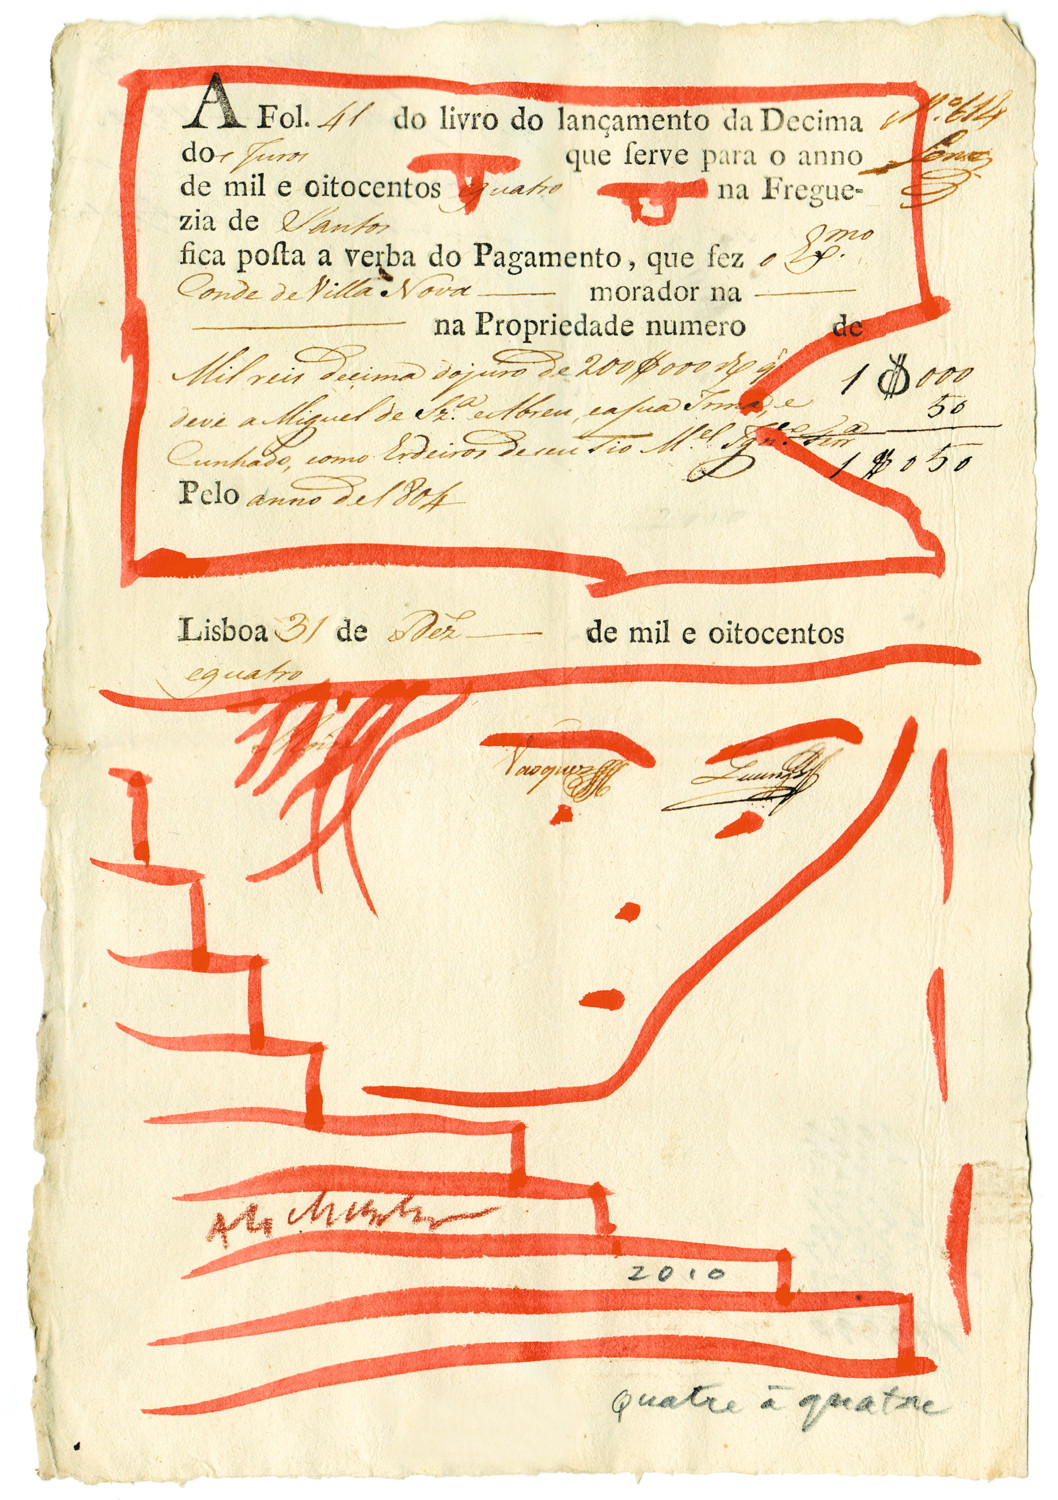 A Fol. 41 do livro do lançamento da Decima
Nº 614
dos Juros que ſerve para o anno
de mil e oitocentos equatro na Fregue-
zia de Santos
fica poſta a verba do Pagamento, que fez o Exmo
Conde de Villa Nova morador na
na Propriedade numero de
Mil reis decima dojuro de 200$000 rs q 1$000
deve a Miguel de Sz.ª e Abreu, e a sua Irmã, e 50
Cunhado, como Erdeiros de seu Tio M.el 1$050
Pelo anno de 1804
Lisboa 31 de Dez de mil e oitocentos
equatro
Vasques
2010
quatre à quatre